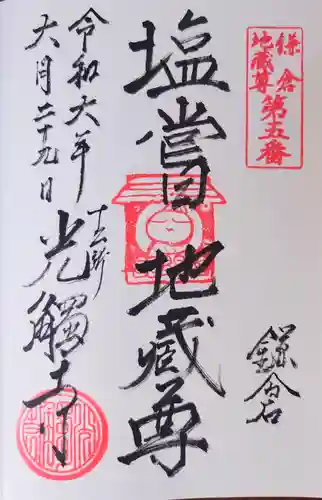 鎌倉
地蔵尊
第五番
鎌倉
塩嘗地蔵尊
令和六年
六月二十九日
十二所
光觸寺